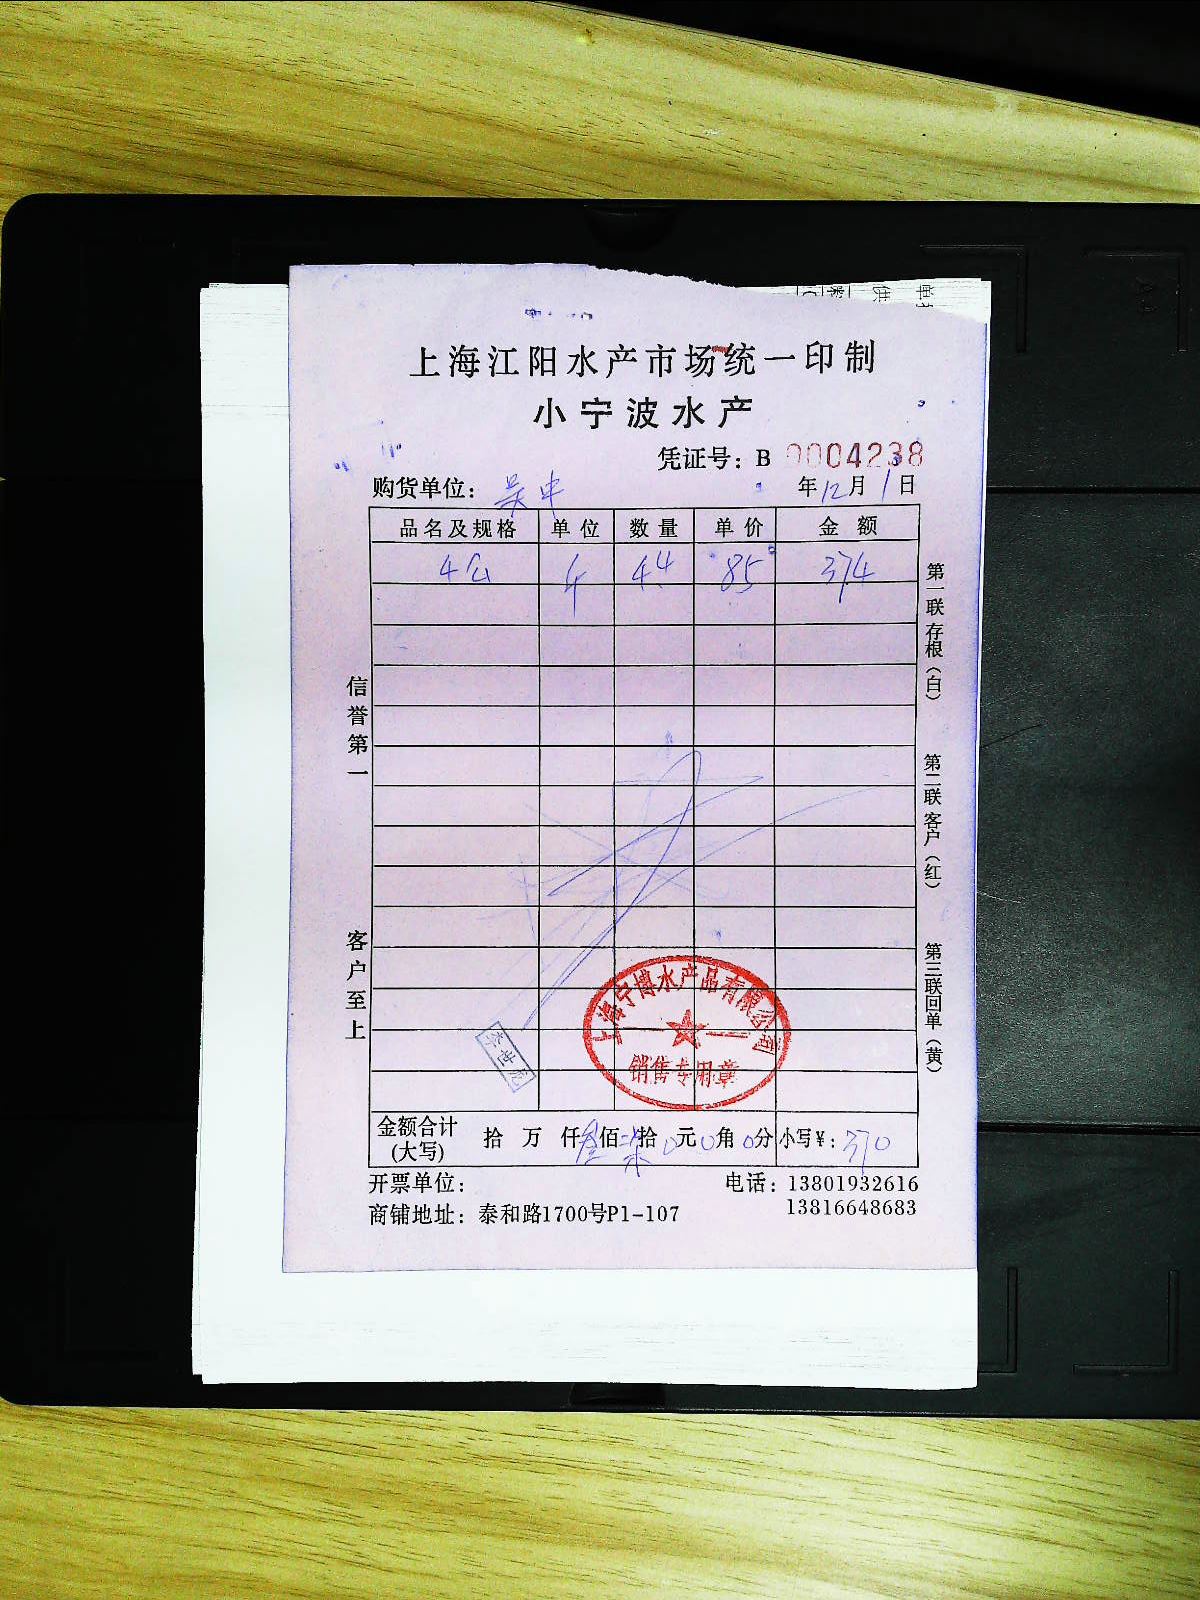 上海江阳水产市场统一印制
小宁波水产
凭证号：B 0004238
购货单位：吴中 年12月1日
品名及规格 单位 数量 单价 金额
4公 斤 44 85 374
信誉第一
客户至上
第一联存根（白）
第二联客户（红）
第三联回单（黄）
上海宁博水产品有限公司
销售专用章
李世龙
金额合计（大写） 拾 万 仟 叁佰 柒拾 0元 0角 0分 小写¥：370
开票单位： 电话：13801932616
商铺地址：泰和路1700号P1-107 13816648683